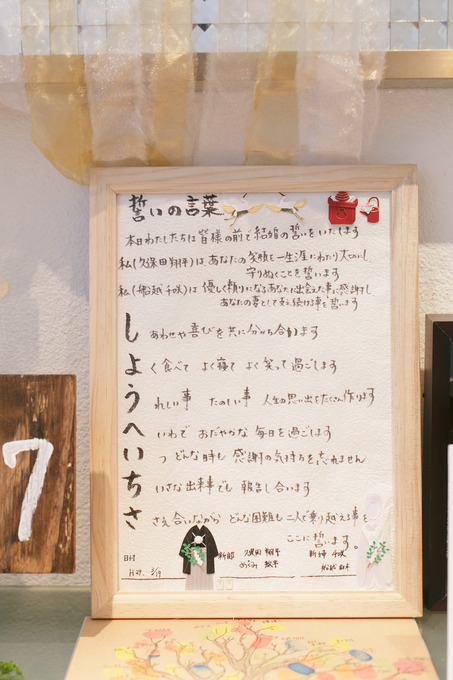 誓いの言葉
本日わたしたちは 皆様の前で結婚の誓いをいたします
私(久保田 翔平)は あなたの笑顔を一生涯にわたり大切にし
守りぬくことを誓います
私(船越 千咲)は 優しく頼りになるあなたに出会えた事に感謝し
あなたの妻として支え続ける事を誓います
しあわせや喜びを共に分かち合います
よく食べて よく寝て よく笑って過ごします
うれしい事 たのしい事 人生の思い出をたくさん作ります
へいわで おだやかな 毎日を過ごします
いつ どんな時も 感謝の気持ちを忘れません
ちいさな出来事でも 報告し合います
ささえ合いながら どんな困難も 二人で乗り越える事を
ここに誓います。
日付 新郎 久保田 翔平 新婦 千咲
H29. 3/19
7